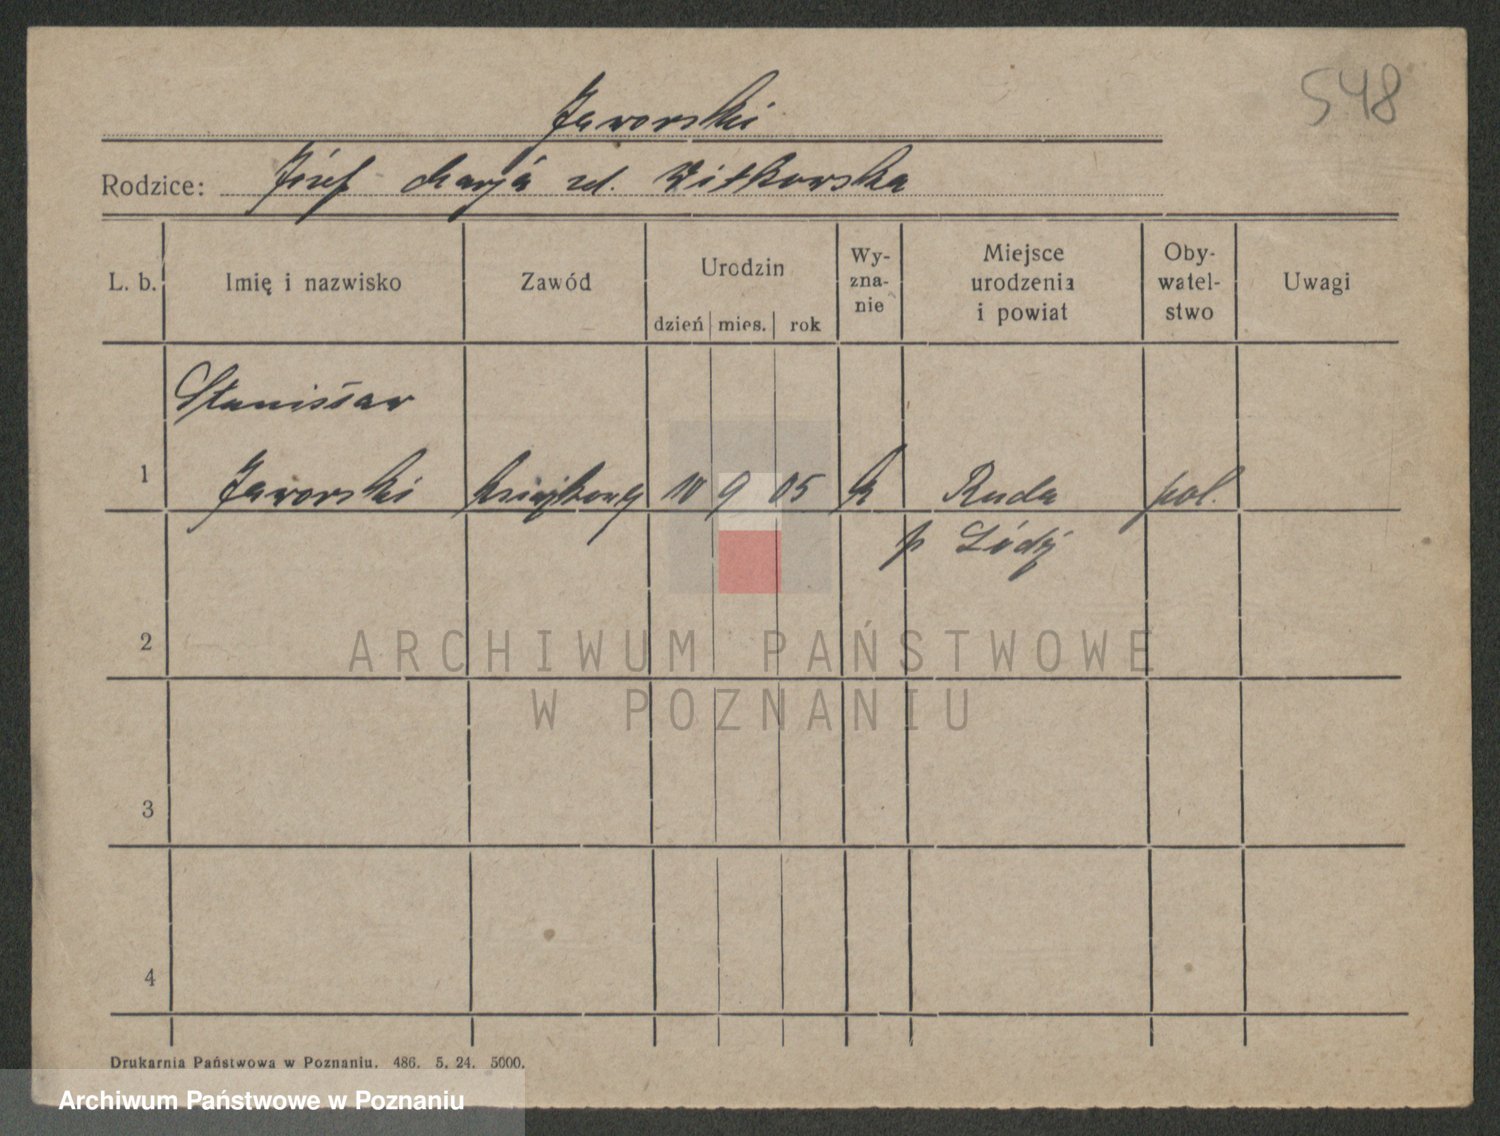 548
Jaworski
Rodzice: Józef Marja zd. Witkowska
L. b.
Imię i nazwisko
Zawód
Urodzin
dzień mies. rok
Wy-
zna-
nie
Miejsce
urodzenia
i powiat
Oby-
watel-
stwo
Uwagi
Stanisław
1 Jaworski książkowy 10 9 05 k Ruda pol.
p Łódź
2
3
4
ARCHIWUM PAŃSTWOWE
W POZNANIU
Drukarnia Państwowa w Poznaniu. 486. 5. 24. 5000.
Archiwum Państwowe w Poznaniu